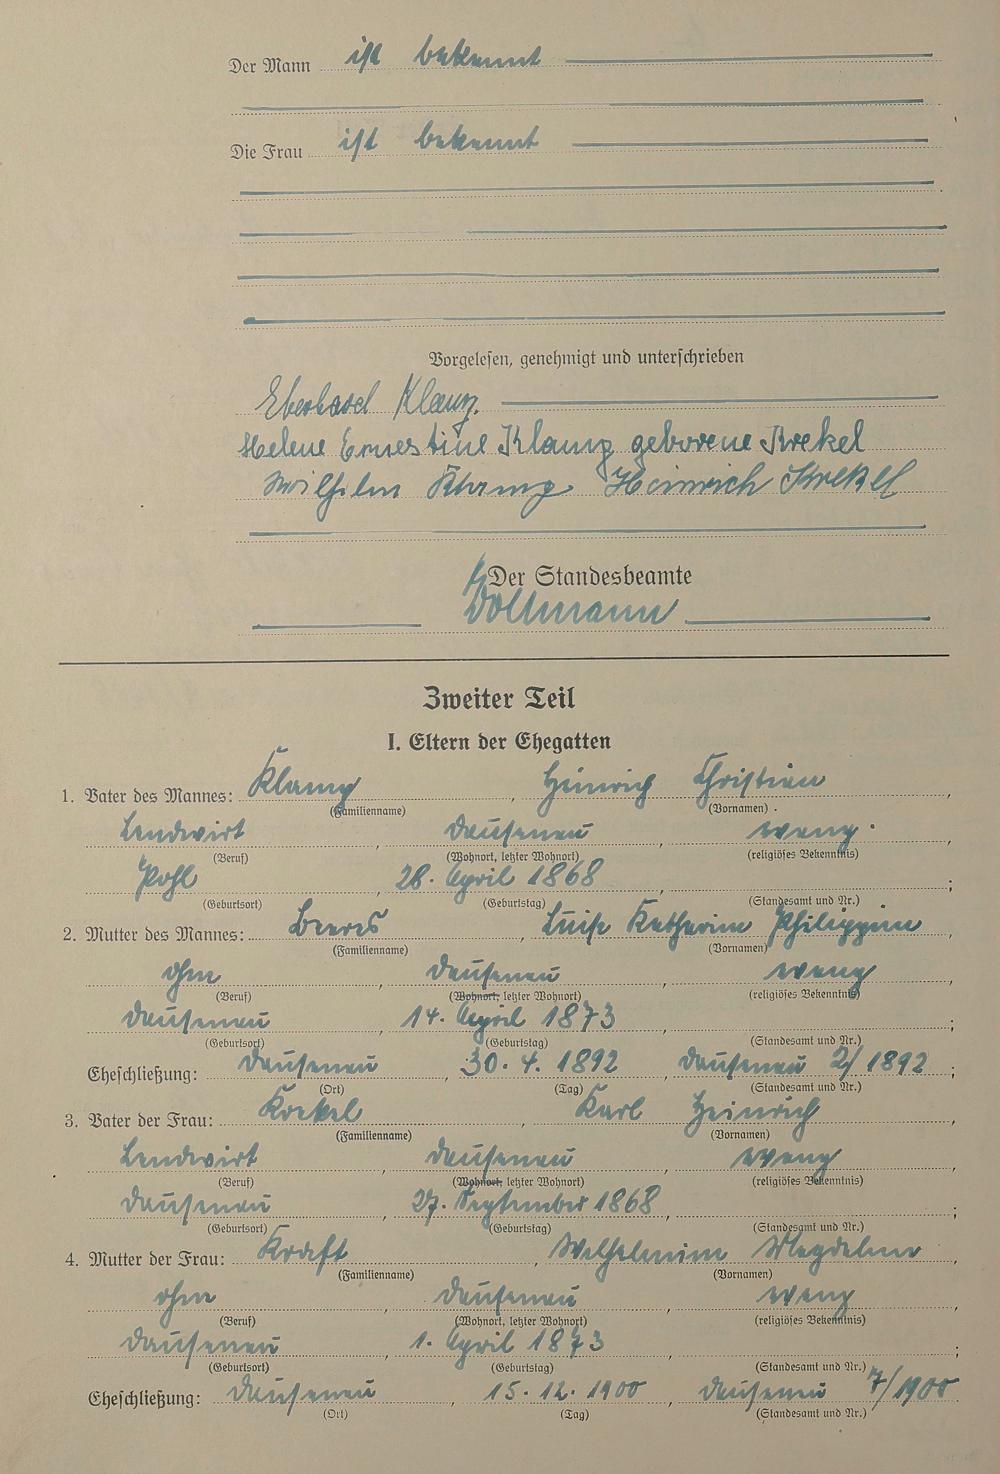 Der Mann ist bekannt
Die Frau ist bekannt
Vorgelesen, genehmigt und unterschrieben
Eberhard Klamp
Helene Ernestine Klamp geborene Krekel
Wilhelm Heinrich Krekel
Der Standesbeamte
Zweiter Teil
I. Eltern der Ehegatten
1. Vater des Mannes: Klamp, Heinrich Christian,
(Familienname) (Vornamen)
Landwirt, Dausenau, evang.
(Beruf) (Wohnort, letzter Wohnort) (religiöses Bekenntnis)
Pohl, 28. April 1868, ;
(Geburtsort) (Geburtstag) (Standesamt und Nr.)
2. Mutter des Mannes: , Luise Katharine Philippine,
(Familienname) (Vornamen)
ohne, Dausenau, evang,
(Beruf) (Wohnort, letzter Wohnort) (religiöses Bekenntnis)
Dausenau, 14. April 1873, ;
(Geburtsort) (Geburtstag) (Standesamt und Nr.)
Eheschließung: Dausenau, 30. 4. 1892, Dausenau 2/1892;
(Ort) (Tag) (Standesamt und Nr.)
3. Vater der Frau: Krekel, Karl Heinrich,
(Familienname) (Vornamen)
Landwirt, Dausenau, evang,
(Beruf) (Wohnort, letzter Wohnort) (religiöses Bekenntnis)
Dausenau, 27. September 1868, ;
(Geburtsort) (Geburtstag) (Standesamt und Nr.)
4. Mutter der Frau: Kraft, Wilhelmine Magdalene,
(Familienname) (Vornamen)
ohne, Dausenau, evang,
(Beruf) (Wohnort, letzter Wohnort) (religiöses Bekenntnis)
Dausenau, 1. April 1873, ;
(Geburtsort) (Geburtstag) (Standesamt und Nr.)
Eheschließung: Dausenau, 15. 12. 1900, Dausenau 7/1900.
(Ort) (Tag) (Standesamt und Nr.)